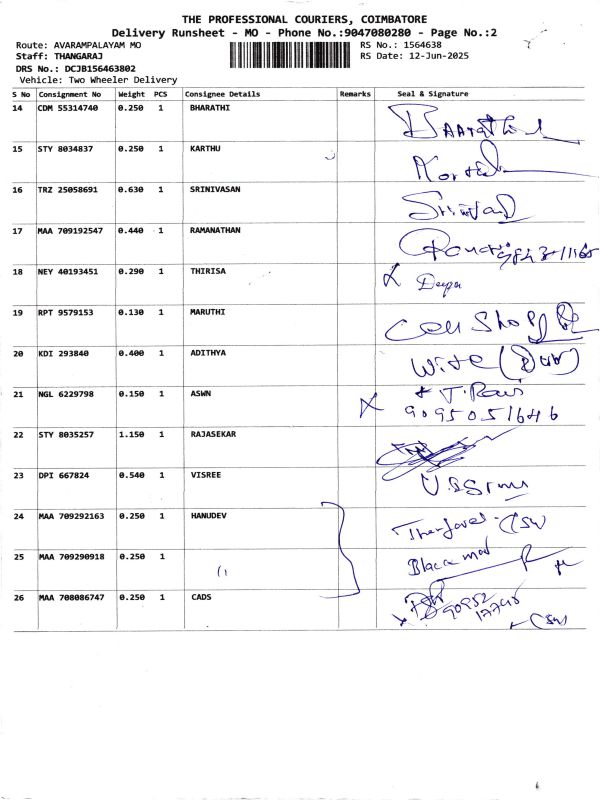 THE PROFESSIONAL COURIERS, COIMBATORE
Delivery Runsheet - MO - Phone No.:9047080280 - Page No.:2
Route: AVARAMPALAYAM MO RS No.: 1564638
Staff: THANGARAJ RS Date: 12-Jun-2025
DRS No.: DCJB156463802
Vehicle: Two Wheeler Delivery
S No Consignment No Weight PCS Consignee Details Remarks Seal & Signature
14 CDM 55314740 0.250 1 BHARATHI
15 STY 8034837 0.250 1 KARTHU
16 TRZ 25058691 0.630 1 SRINIVASAN
17 MAA 709192547 0.440 1 RAMANATHAN
18 NEY 40193451 0.290 1 THIRISA Deepa
19 RPT 9579153 0.130 1 MARUTHI Cell Shop
20 KDI 293840 0.400 1 ADITHYA Wife
21 NGL 6229798 0.150 1 ASWN T. Ravi
9095051646
22 STY 8035257 1.150 1 RAJASEKAR
23 DPI 667824 0.540 1 VISREE
24 MAA 709292163 0.250 1 HANUDEV
25 MAA 709290918 0.250 1
26 MAA 708086747 0.250 1 CADS 90952
17795